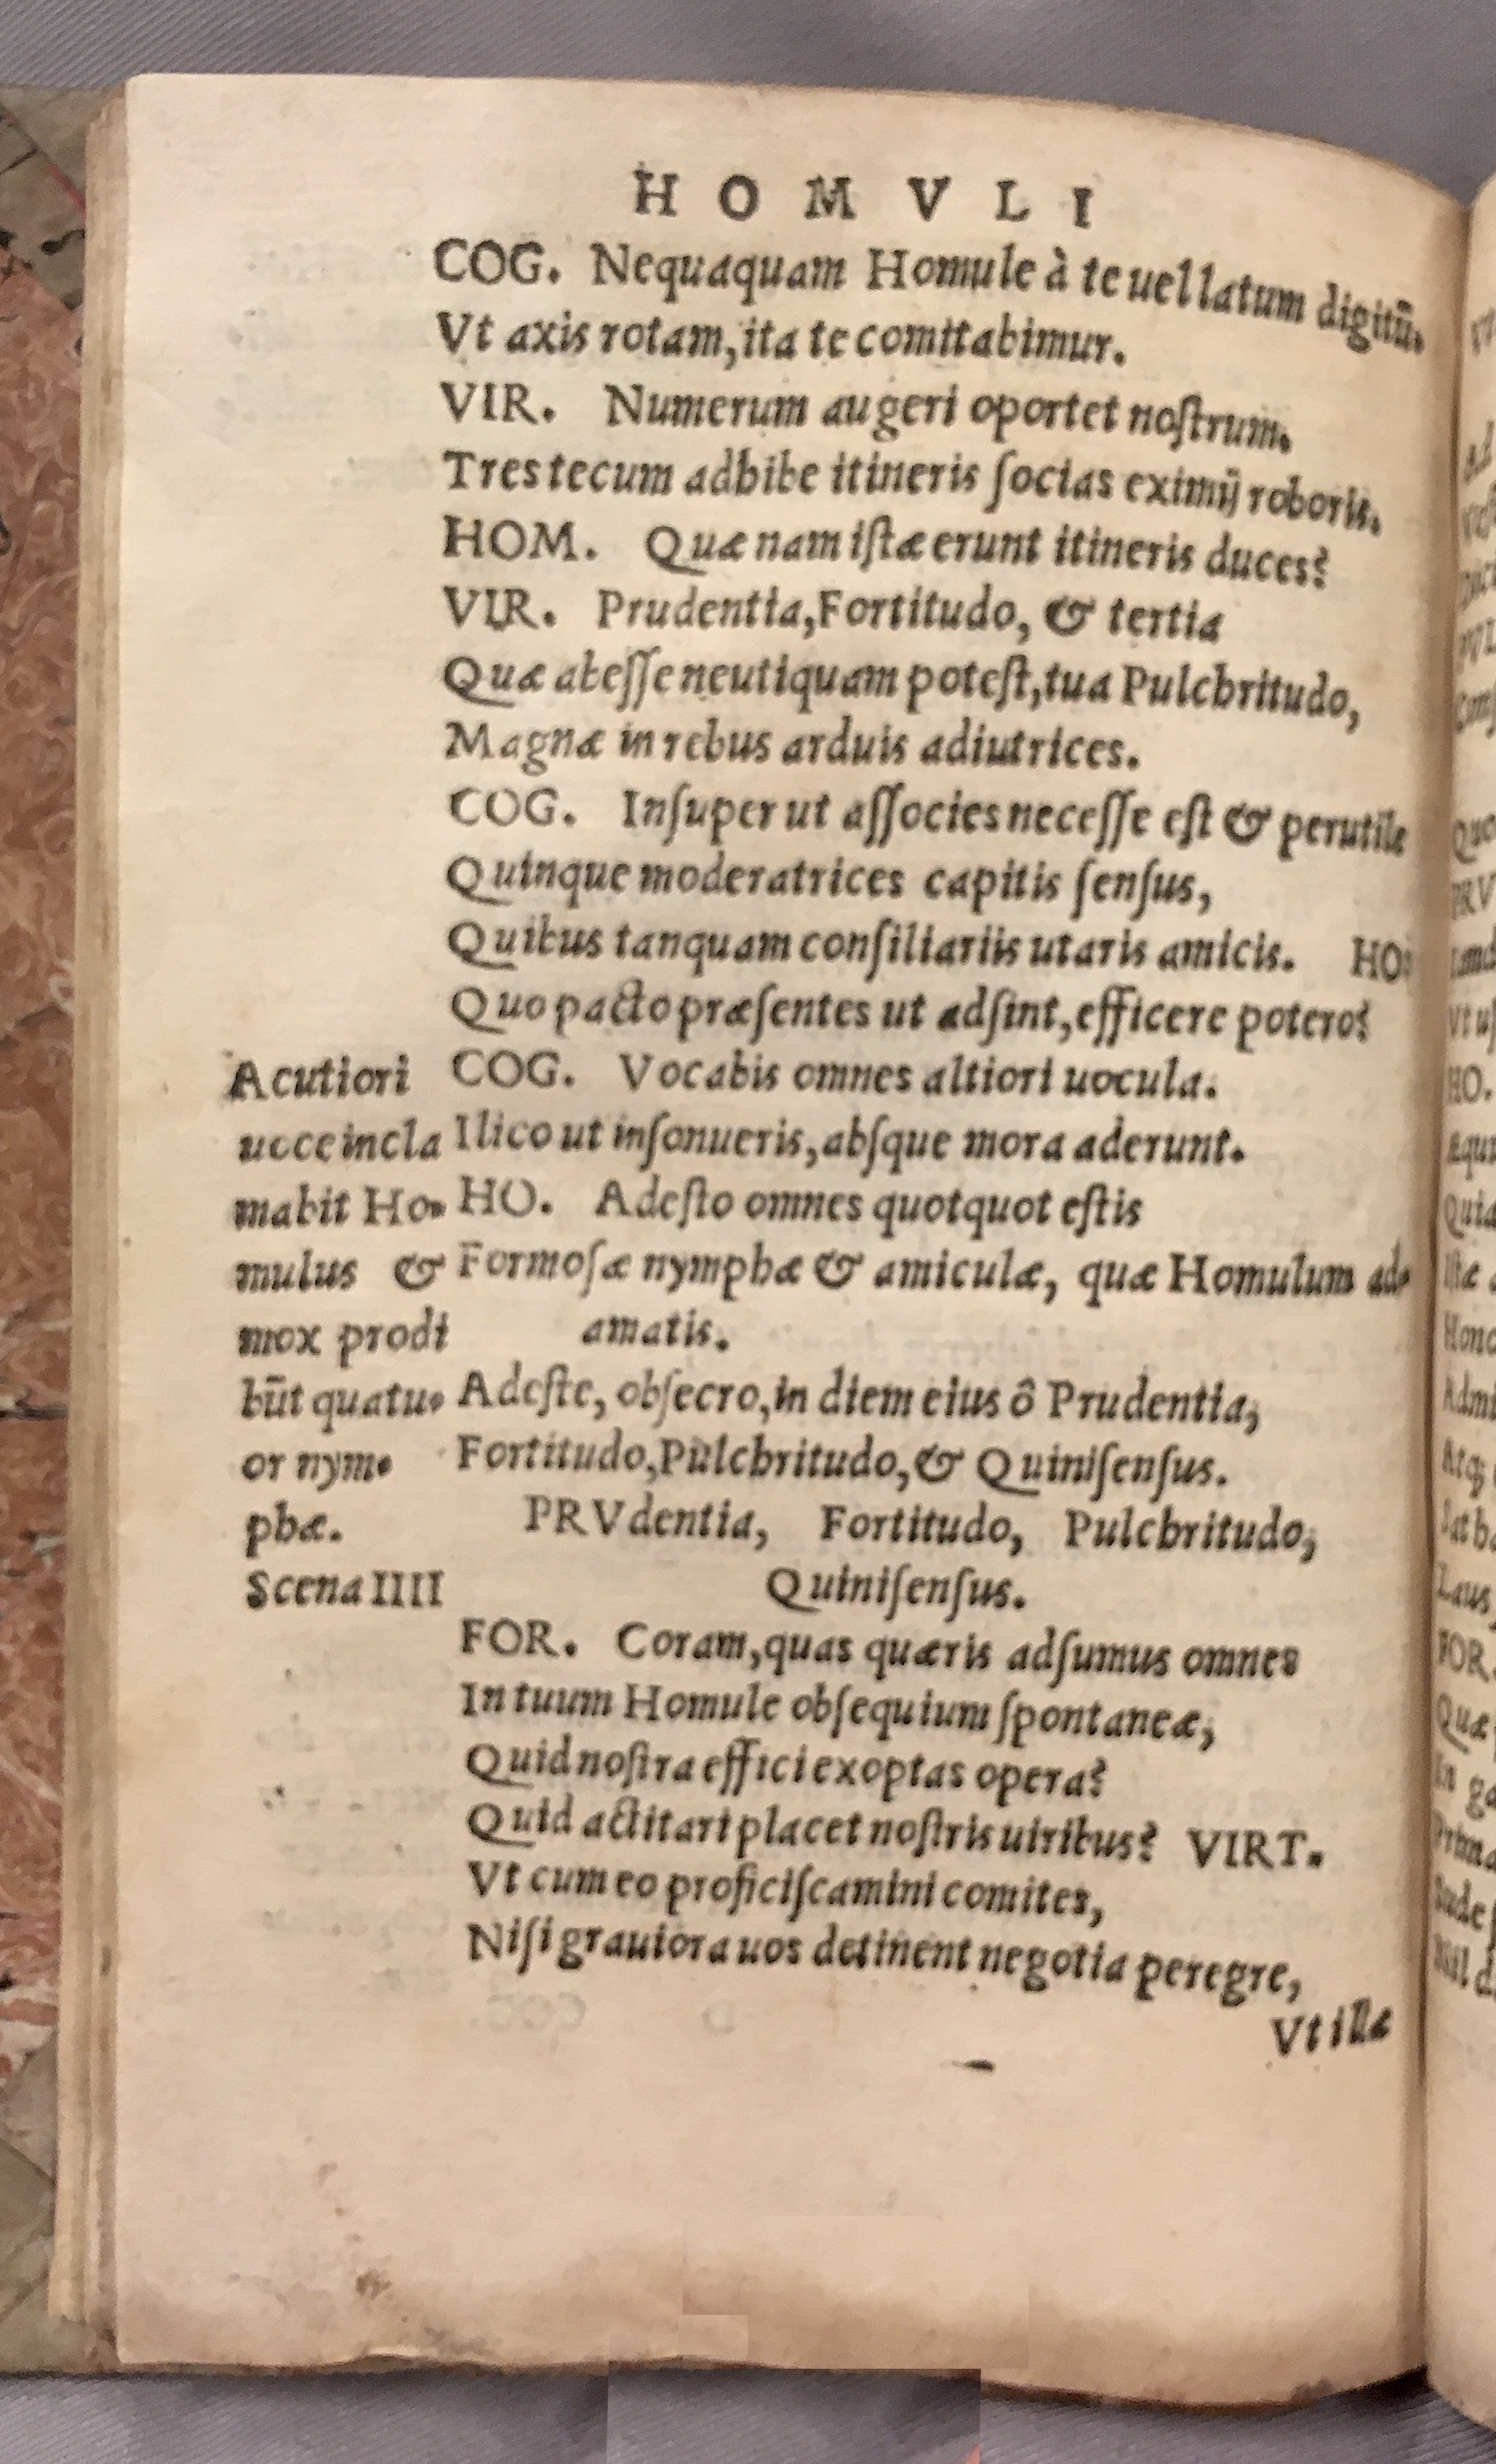 HOMVLI
COG. Nequaquam Homule à te uel latum digitū.
Vt axis rotam, ita te comitabimur.
VIR. Numerum augeri oportet noſtrum.
Tres tecum adhibe itineris ſocias eximij roboris.
HOM. Quæ nam iſtæ erunt itineris duces?
VIR. Prudentia, Fortitudo, & tertia
Quæ abeſſe neutiquam poteſt, tua Pulchritudo,
Magnæ in rebus arduis adiutrices.
COG. Inſuper ut aſſocies neceſſe eſt & perutile
Quinque moderatrices capitis ſenſus,
Quibus tanquam conſiliariis utaris amicis. HO:
Quo pacto præſentes ut adſint, efficere potero?
COG. Vocabis omnes altiori uocula.
Ilico ut inſonueris, abſque mora aderunt.
HO. Adeſto omnes quotquot eſtis
Formoſæ nymphæ & amiculæ, quæ Homulum ad-
amatis.
Adeſte, obſecro, in diem eius ô Prudentia,
Fortitudo, Pulchritudo, & Quiniſenſus.
Acutiori
uoce incla
mabit Ho-
mulus &
mox prodi
būt quatu-
or nym-
phæ.
Scena IIII
PRVdentia, Fortitudo, Pulchritudo,
Quiniſenſus.
FOR. Coram, quas quæris adſumus omnes
In tuum Homule obſequium ſpontaneæ,
Quid noſtra effici exoptas opera?
Quid actitari placet noſtris uiribus? VIRT.
Vt cum eo proficiſcamini comites,
Niſi grauiora uos detinent negotia peregre,
Vt illæ